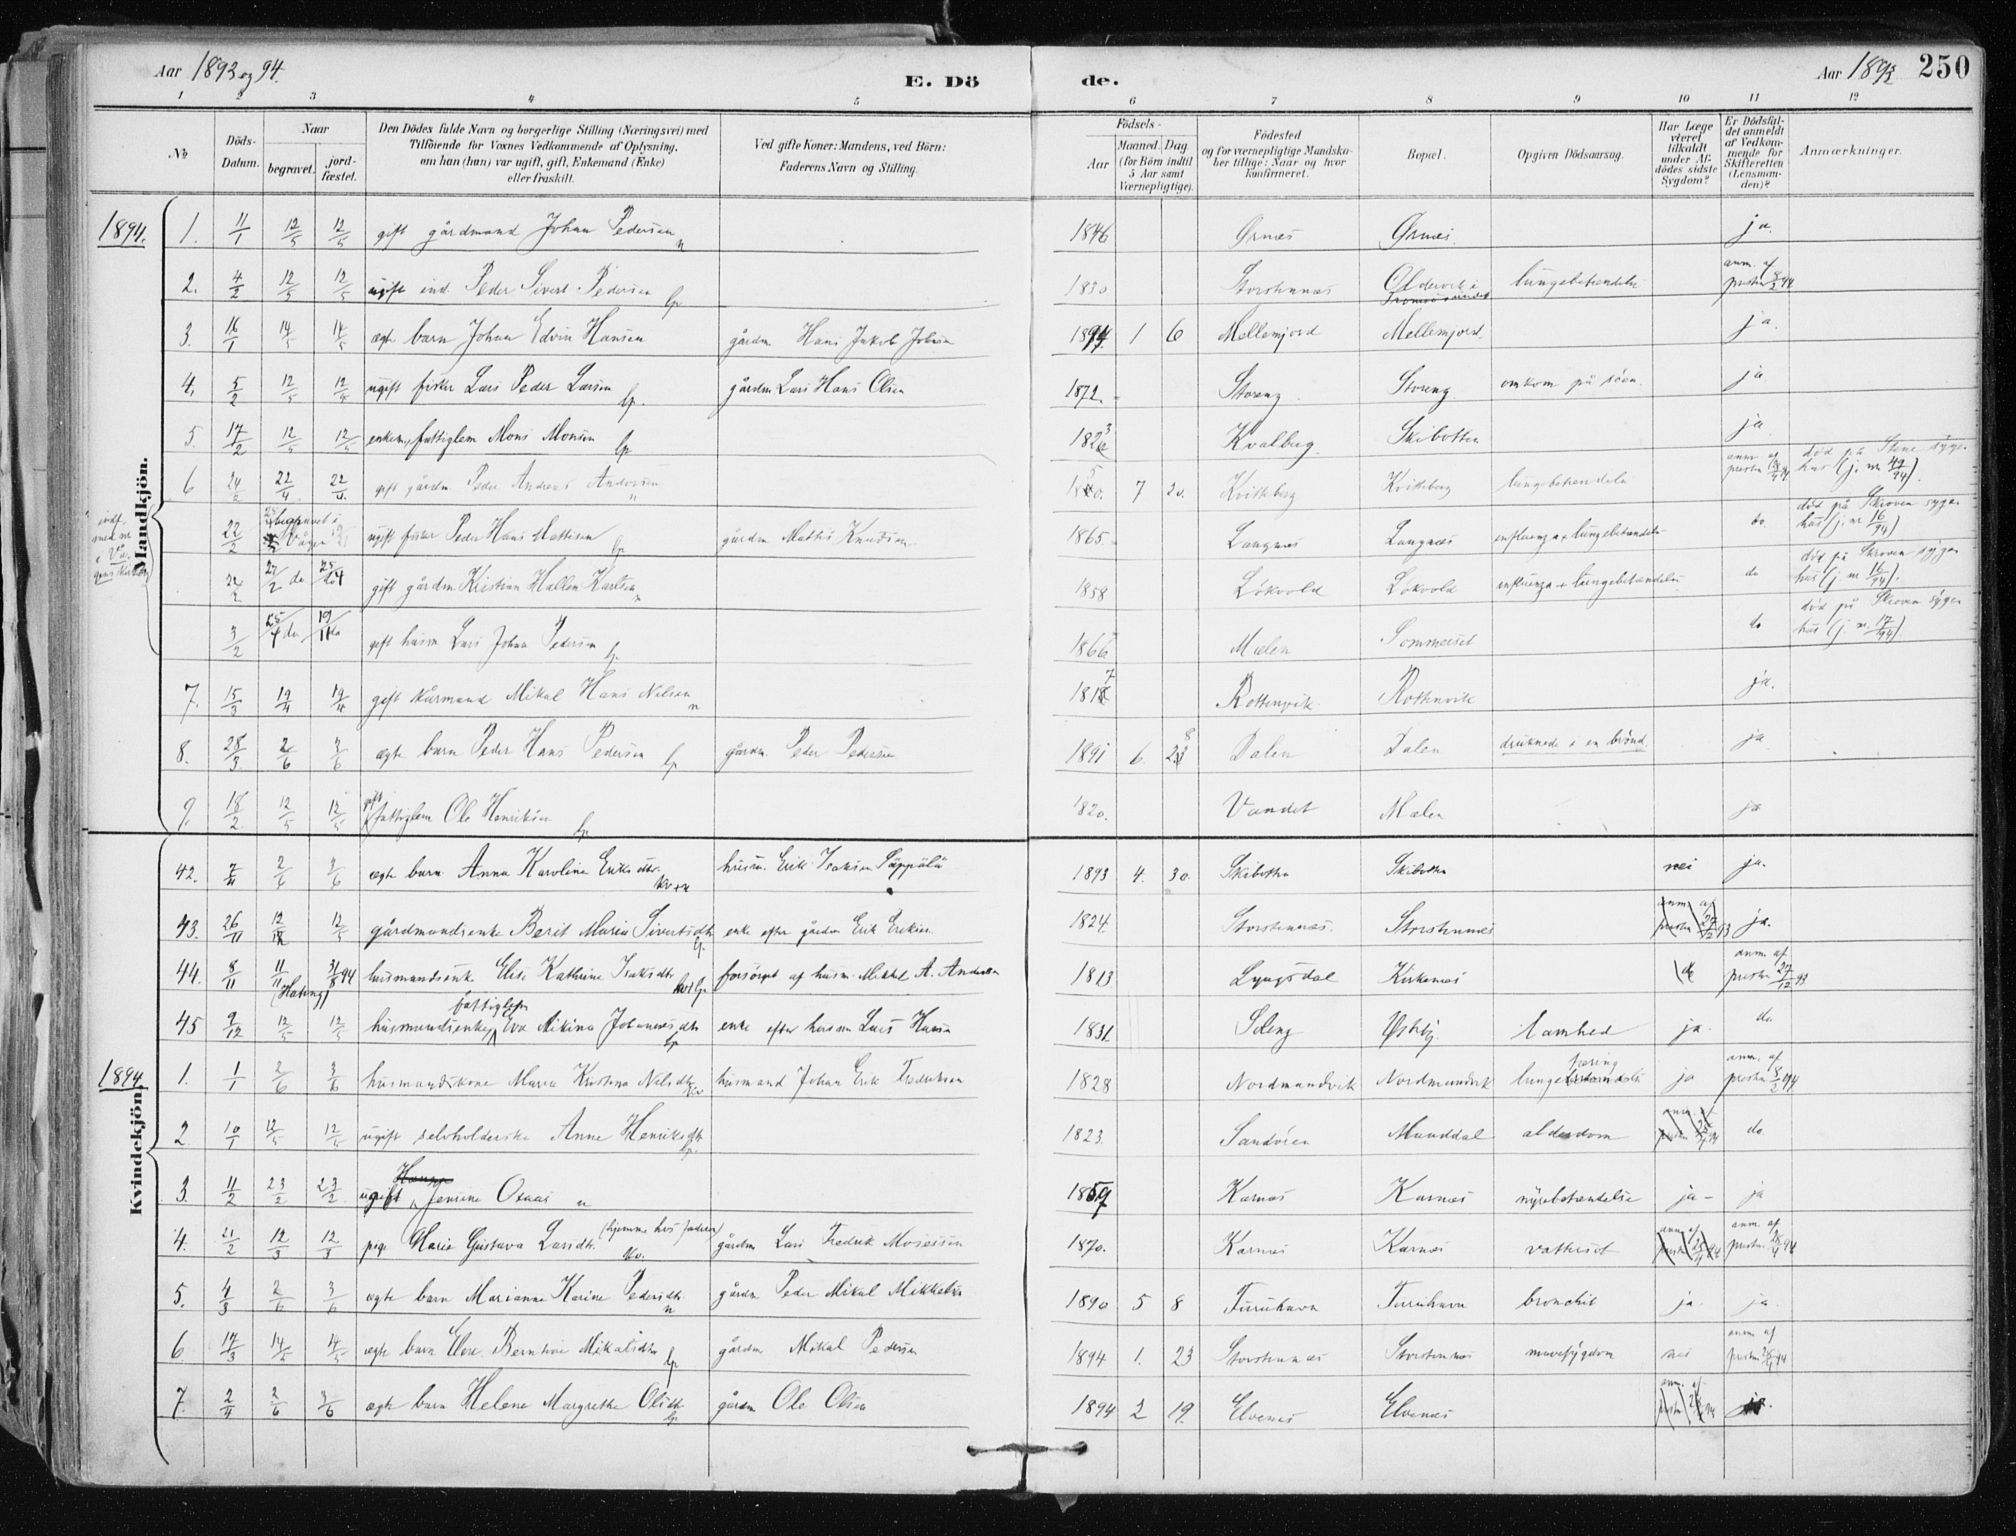 Aar 1893 og 94.
E. Dö
de.
Aar 1893
250
1 2 3 4 5 6 7 8 9 10 11 12
No
Döds-Datum.
Naar
begravet.
jord-fæstet.
Den Dödes fulde Navn og borgerlige Stilling (Næringsvei) med
Tilföiende for Voxnes Vedkommende af Oplysning,
om han (hun) var ugift, gift, Enkemand (Enke)
eller fraskilt.
Ved gifte Koner: Mandens, ved Börn:
Faderens Navn og Stilling.
Födsels-
Aar
Maaned. Dag.
(for Börn indtil
5 Aar samt
Værnepligtige).
Födested
og for værnepligtige Mandska-
ber tillige: Naar og hvor
konfirmeret.
Bopæl.
Opgiven Dödsaarsag.
Har Læge
været
tilkaldt
under Af-
dödes sidste
Sygdom?
Er Dödsfal-
det anmeldt
af Vedkom-
mende for
Skifteretten
(Lensman-
den)?
Anmærkninger.
1894.
Mandkjön.
1. 11/1 12/5 12/5 gift gårdmand Johan Pedersen n 1846 Ørnæs Ørnæs. ja.
2. 4/2 12/5 12/5 ugift ind. Peder Sivert Pedersen lp 1830 Storstennæs Oldervik i Tromsösundet lungebetændelse anm. af presten 8/2 94
3. 16/1 14/5 14/5 ægte barn Johan Edvin Hansen gårdm Hans Jakob Johnsen 1894. 1 6 Mellemjord Mellemjord. ja.
4. 5/2 12/5 12/5 ugift fisker Lars Peder Larsen lp. gårdm Lars Hans Olsen 1872. Storeng. Storeng. omkom på söen. ja
5. 17/2 12/5 12/5 enkem, fattiglem Mons Monsen lp 1823 Kvalberg. Skibotten ja
6 24/2 22/4 22/4 gift gårdm. Peder Andreas Andersen n 7 20. Kvitberg Kvitberg lungebetændelse anm. af presten död på Stene syge-hus (j. nr 49/94).
22/2 begravet i Vågan ugift fisker Peder Hans Mathisen lp gårdm Mathis Knudsen 1865. Langnæs Langnæs influenza + lungebetændelse do. död på Skroven syge-hus (j. nr 16/94)
22/2 27/2 do 25/4 gift gårdm. Kristian Hallen Karlsen n 1858 Lökvold Lökvold influenza + lungebetændelse do död på Skroven syge-hus (j. nr 16/94).
3/2 25/4 do 19/11 do gift husm Lars Johan Pedersen lp. 1866 Mælen Sommerset do död på Skroven syge-hus (j. nr. 17/94).
7. 15/3 19/4 19/4 gift kårmand Mikal Hans Nilsen n 1817 Rottenvik. Rottenvik ja.
8. 28/3 2/6 3/6 ægte barn Peder Hans Pedersen lp gårdm. Peder Pedersen 1891 6. 28 Dalen Dalen druknede i en brönd. ja
9. 18/2 12/5 12/5 gift fattiglem Ole Henriksen lp 1820. Vandet Mælen ja
42. 7/11 2/6 3/6 ægte barn Anna Karoline Eriksdtr. kv+n husm. Erik Isaksen Säppälä 1893 4. 30. Skibotten Skibotten nei ja.
43. 26/11 12/5 12/5 gårdmandsenke Berit Maria Sivertsdtr lp. enke efter gårdm Erik Eriksen. 1824. Storstennæs. Storstennæs anm. af presten 27/12 93 ja.
44. 8/11 11/11 (Hateng) 31/8 94 husmandsenke Elise Kathrine Isaksdtr kv+lp. forsörget af husm. Mikkel A. Andersen 1813 Lyngsdal Kirkenæs do anm. af presten 27/12 93
45 9/12 12/5 12/5 husmandsenke, fattiglem Eva Nikina Johannesdtr lp enke efter husm Lars Hansen 1831. Soleng Østeby. lamhed ja. do.
1894.
Kvindekjön.
1. 1/1 2/6 3/6 husmandskone Maria Kristina Nilsdtr kv husmand Johan Erik Fredriksen 1828 Nordmandvik Nordmandvik lungetæring ja anm. af presten 8/2 94
2. 10/1 12/5 12/5 ugift selvholderske Anne Henriksdtr lp. 1823. Sandören Manddal alderdom anm. af presten do
3. 11/2 23/2 23/2 ugift Jensine Oxaas n 1859 Karnæs Karnæs nyrebetændelse ja – ja
4. 21/2 12/3 12/3 pige Marie Gustava Larsdtr. (hjemme hos faderen) kv. gårdm Lars Fredrik Mosessen 1870. Karnæs Karnæs vattersot anm. af presten anm. af presten 94
5. 4/3 2/6 3/6 ægte barn Marianne Karine Pedersdtr n gårdm Peder Mikal Mikkelsen 1890 5 8 Furuhavn Furuhavn bronchit ja. ja.
6. 17/3 14/5 14/5 ægte barn Elen Berntine Mikalsdtr lp gårdm Mikal Pedersen 1894 1. 23 Storstennæs Storstennæs mavesygdom nei anm. af presten 94
7. 2/4 2/6 3/6 ægte barn Helene Margrethe Olsdtr lp gårdm Ole Olsen 1894 2 19. Elvenæs Elvenæs anm. af presten ja.